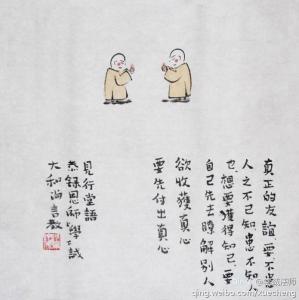 真正的友誼要不患
人之不己知患不知人
也想要獲得知己要
自己先去瞭解別人
欲收獲真心
要先付出真心
見行堂語
恭録恩師上學下誠
大和尚言教
qing.weibo.com/xuecheng